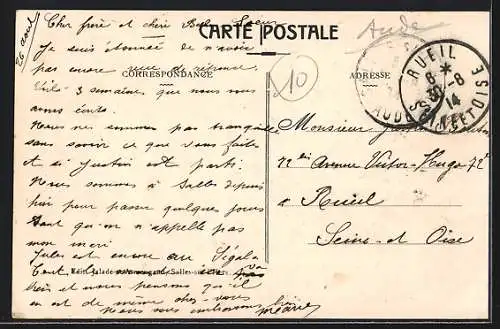 26 août
Cher frère et chère Belle Soeur
Je suis étonnée de n'avoir
pas encore reçu de réponse.
Voilà 3 semaines que nous nous
avons écrit.
Nous ne sommes pas tranquilles
sans savoir ce que vous faites
et si Justin est parti.
Nous sommes à Salles depuis
hier pour passer quelques jours
avant qu'on n'appelle pas
mon mari
Jules est encore au Ségala
Tout va
bien et nous pensons qu'il
en est de même chez vous
Nous vous embrassons bien
CARTE POSTALE
CORRESPONDANCE
ADRESSE
Aude
10
RUEIL
8 *
30 -8
14
SEINE ET OISE
AUDE
Monsieur
72 bis Avenue Victor-Hugo 72 bis
à Rueil
Seine et Oise